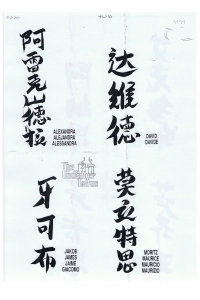 阿雷克山德拉
ALEXANDRA
ALEJANDRA
ALESSANDRA
达维德
DAVID
DAVIDE
牙可布
JAKOB
JAMES
JAIME
GIACOMO
莫立特思
MORITZ
MAURICE
MAURICIO
MAURIZIO